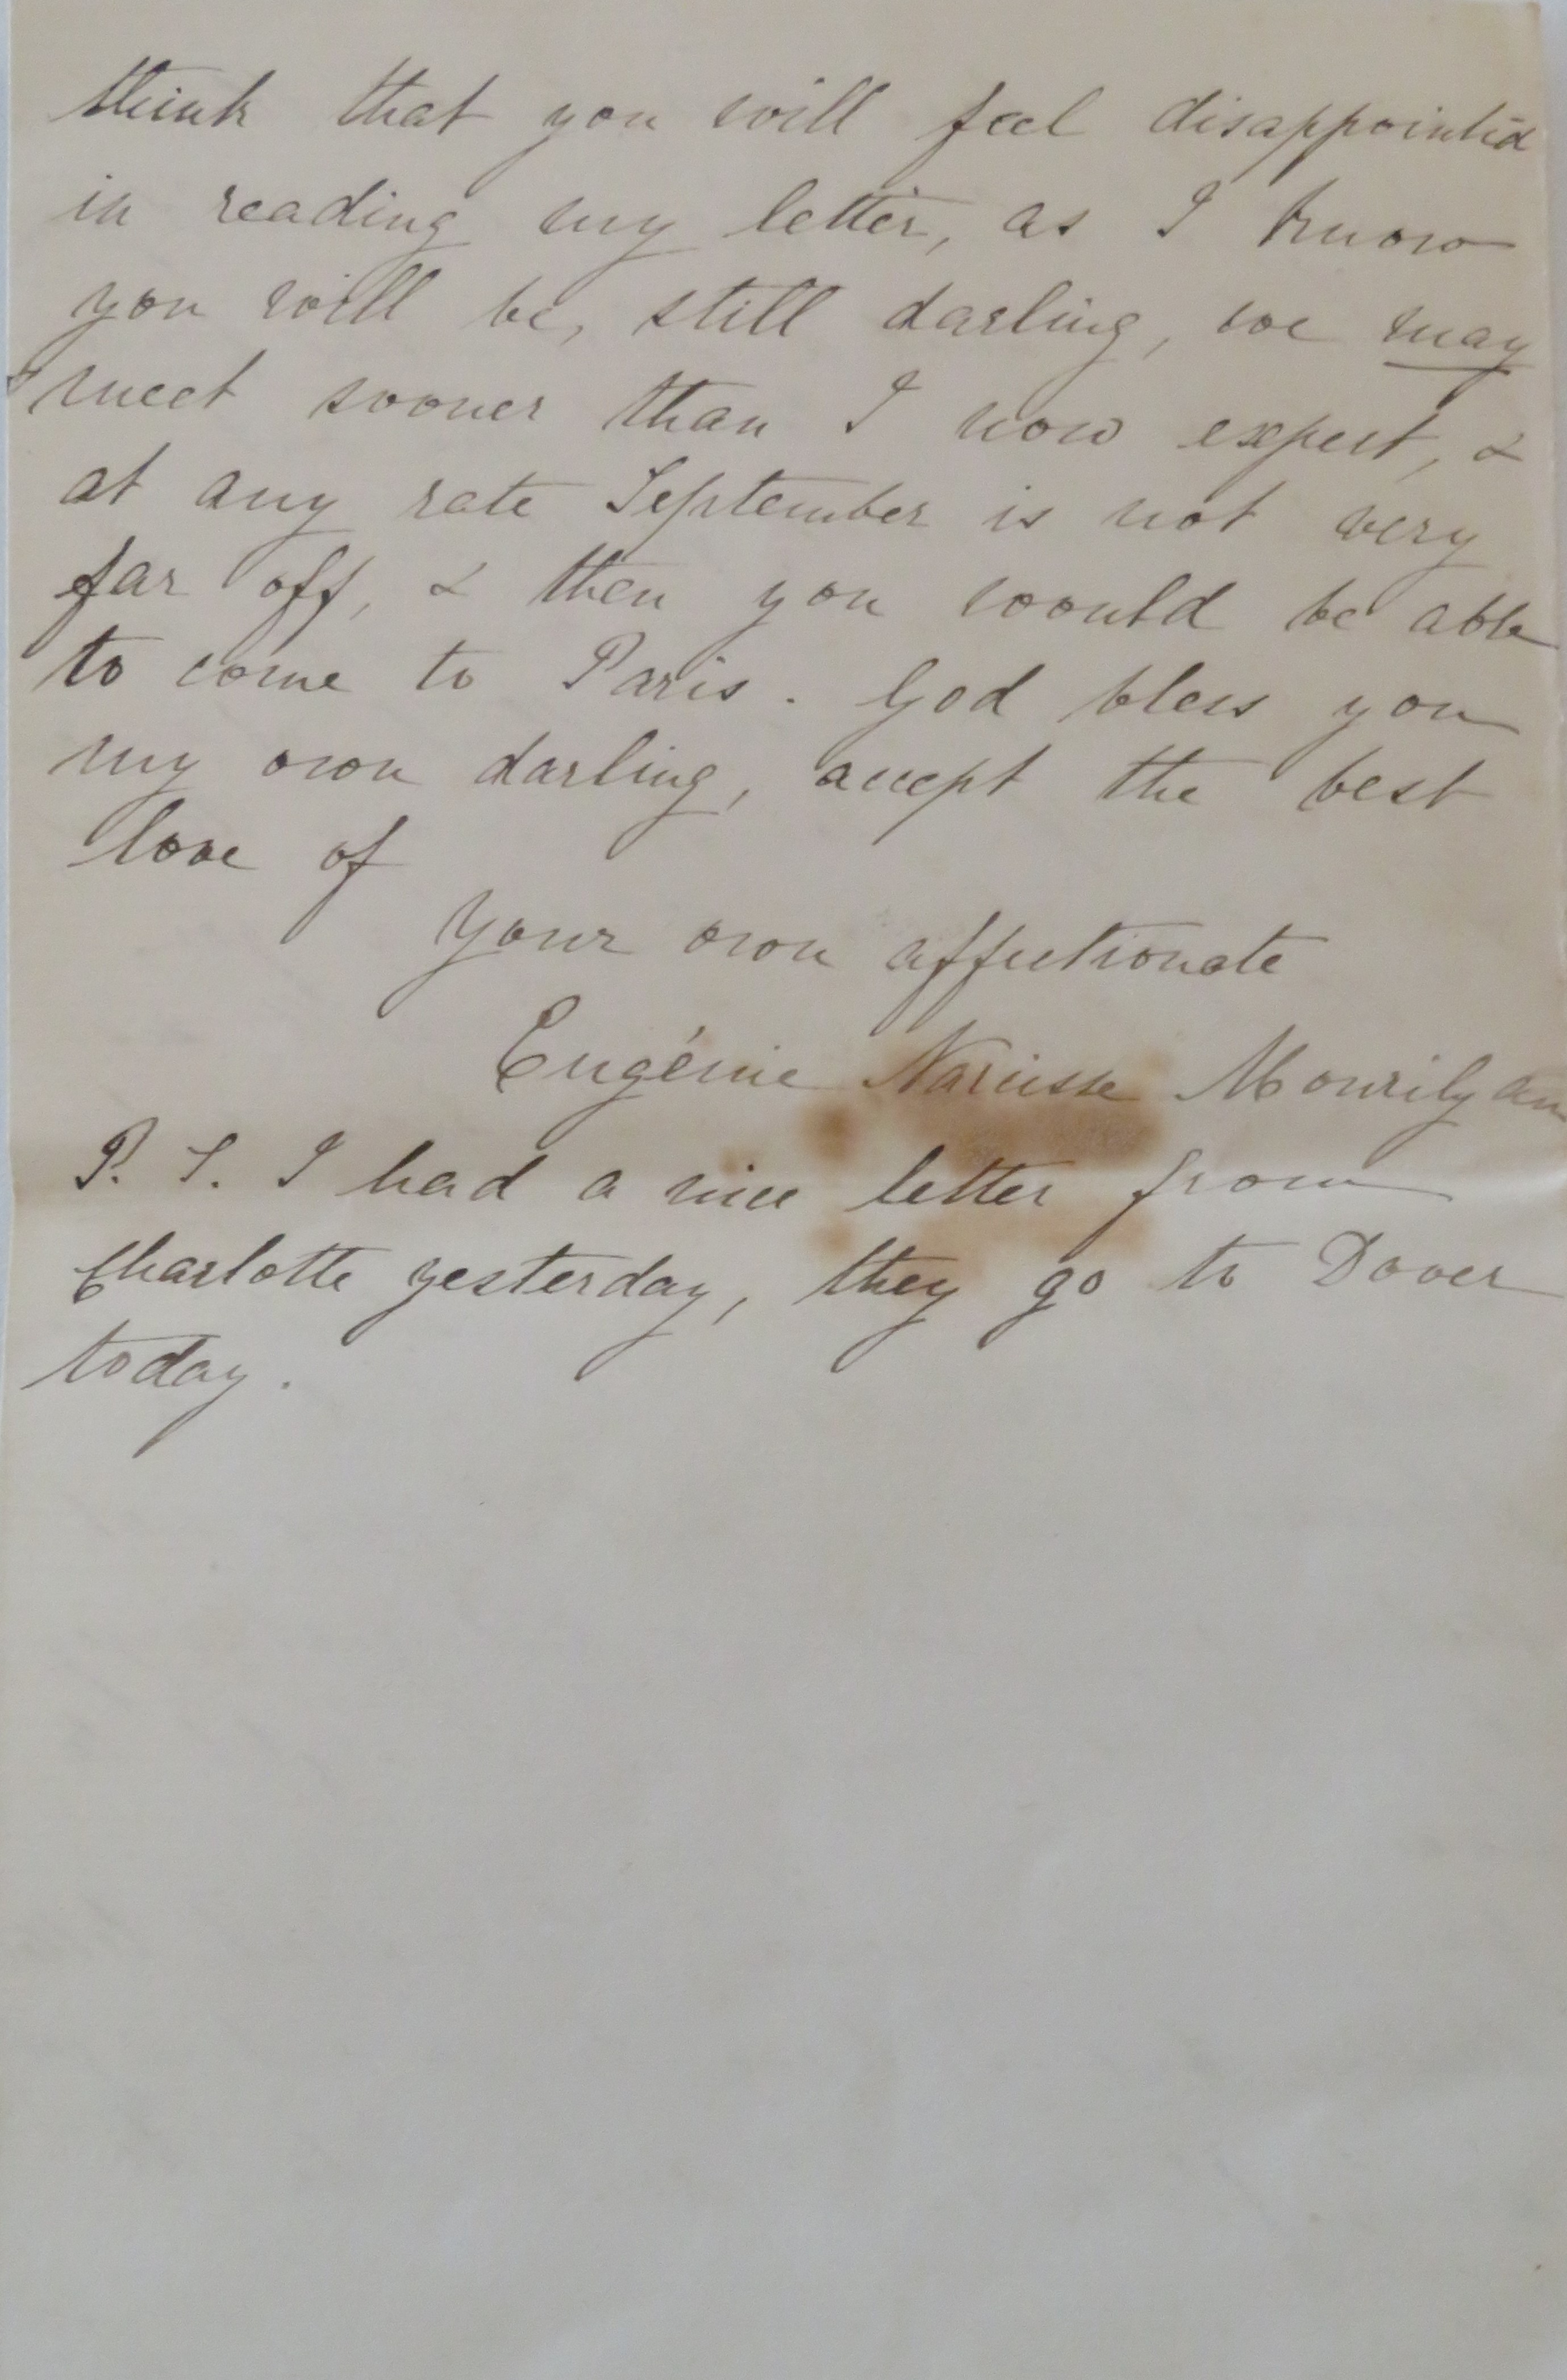 think that you will feel disappointed
in reading my letter, as I know
you will be, still darling, we may
meet sooner than I now expect, &
at any rate September is not very
far off, & then you would be able
to come to Paris. God bless you
my own darling, accept the best
love of
your own affectionate
Eugénie Narcisse Mourilyan
P. S. I had a nice letter from
Charlotte yesterday, they go to Dover
today.